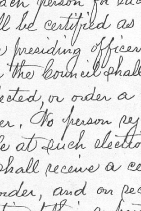 each person for such
ll be certified as
e presiding officer
n the Council shall
lected, or order a
er. No person re
le at such electio
shall receive a ce
nder, and on rec